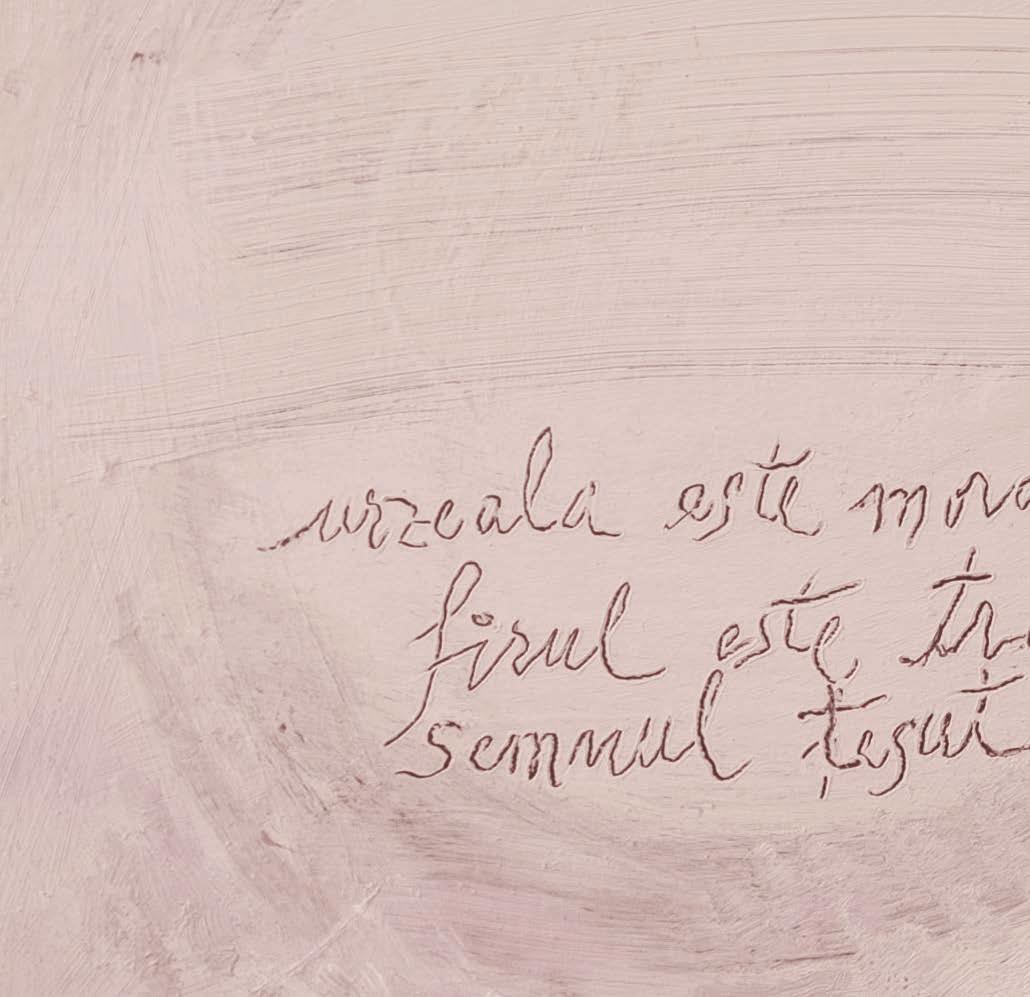 urzeala este
firul este
semnul țesut